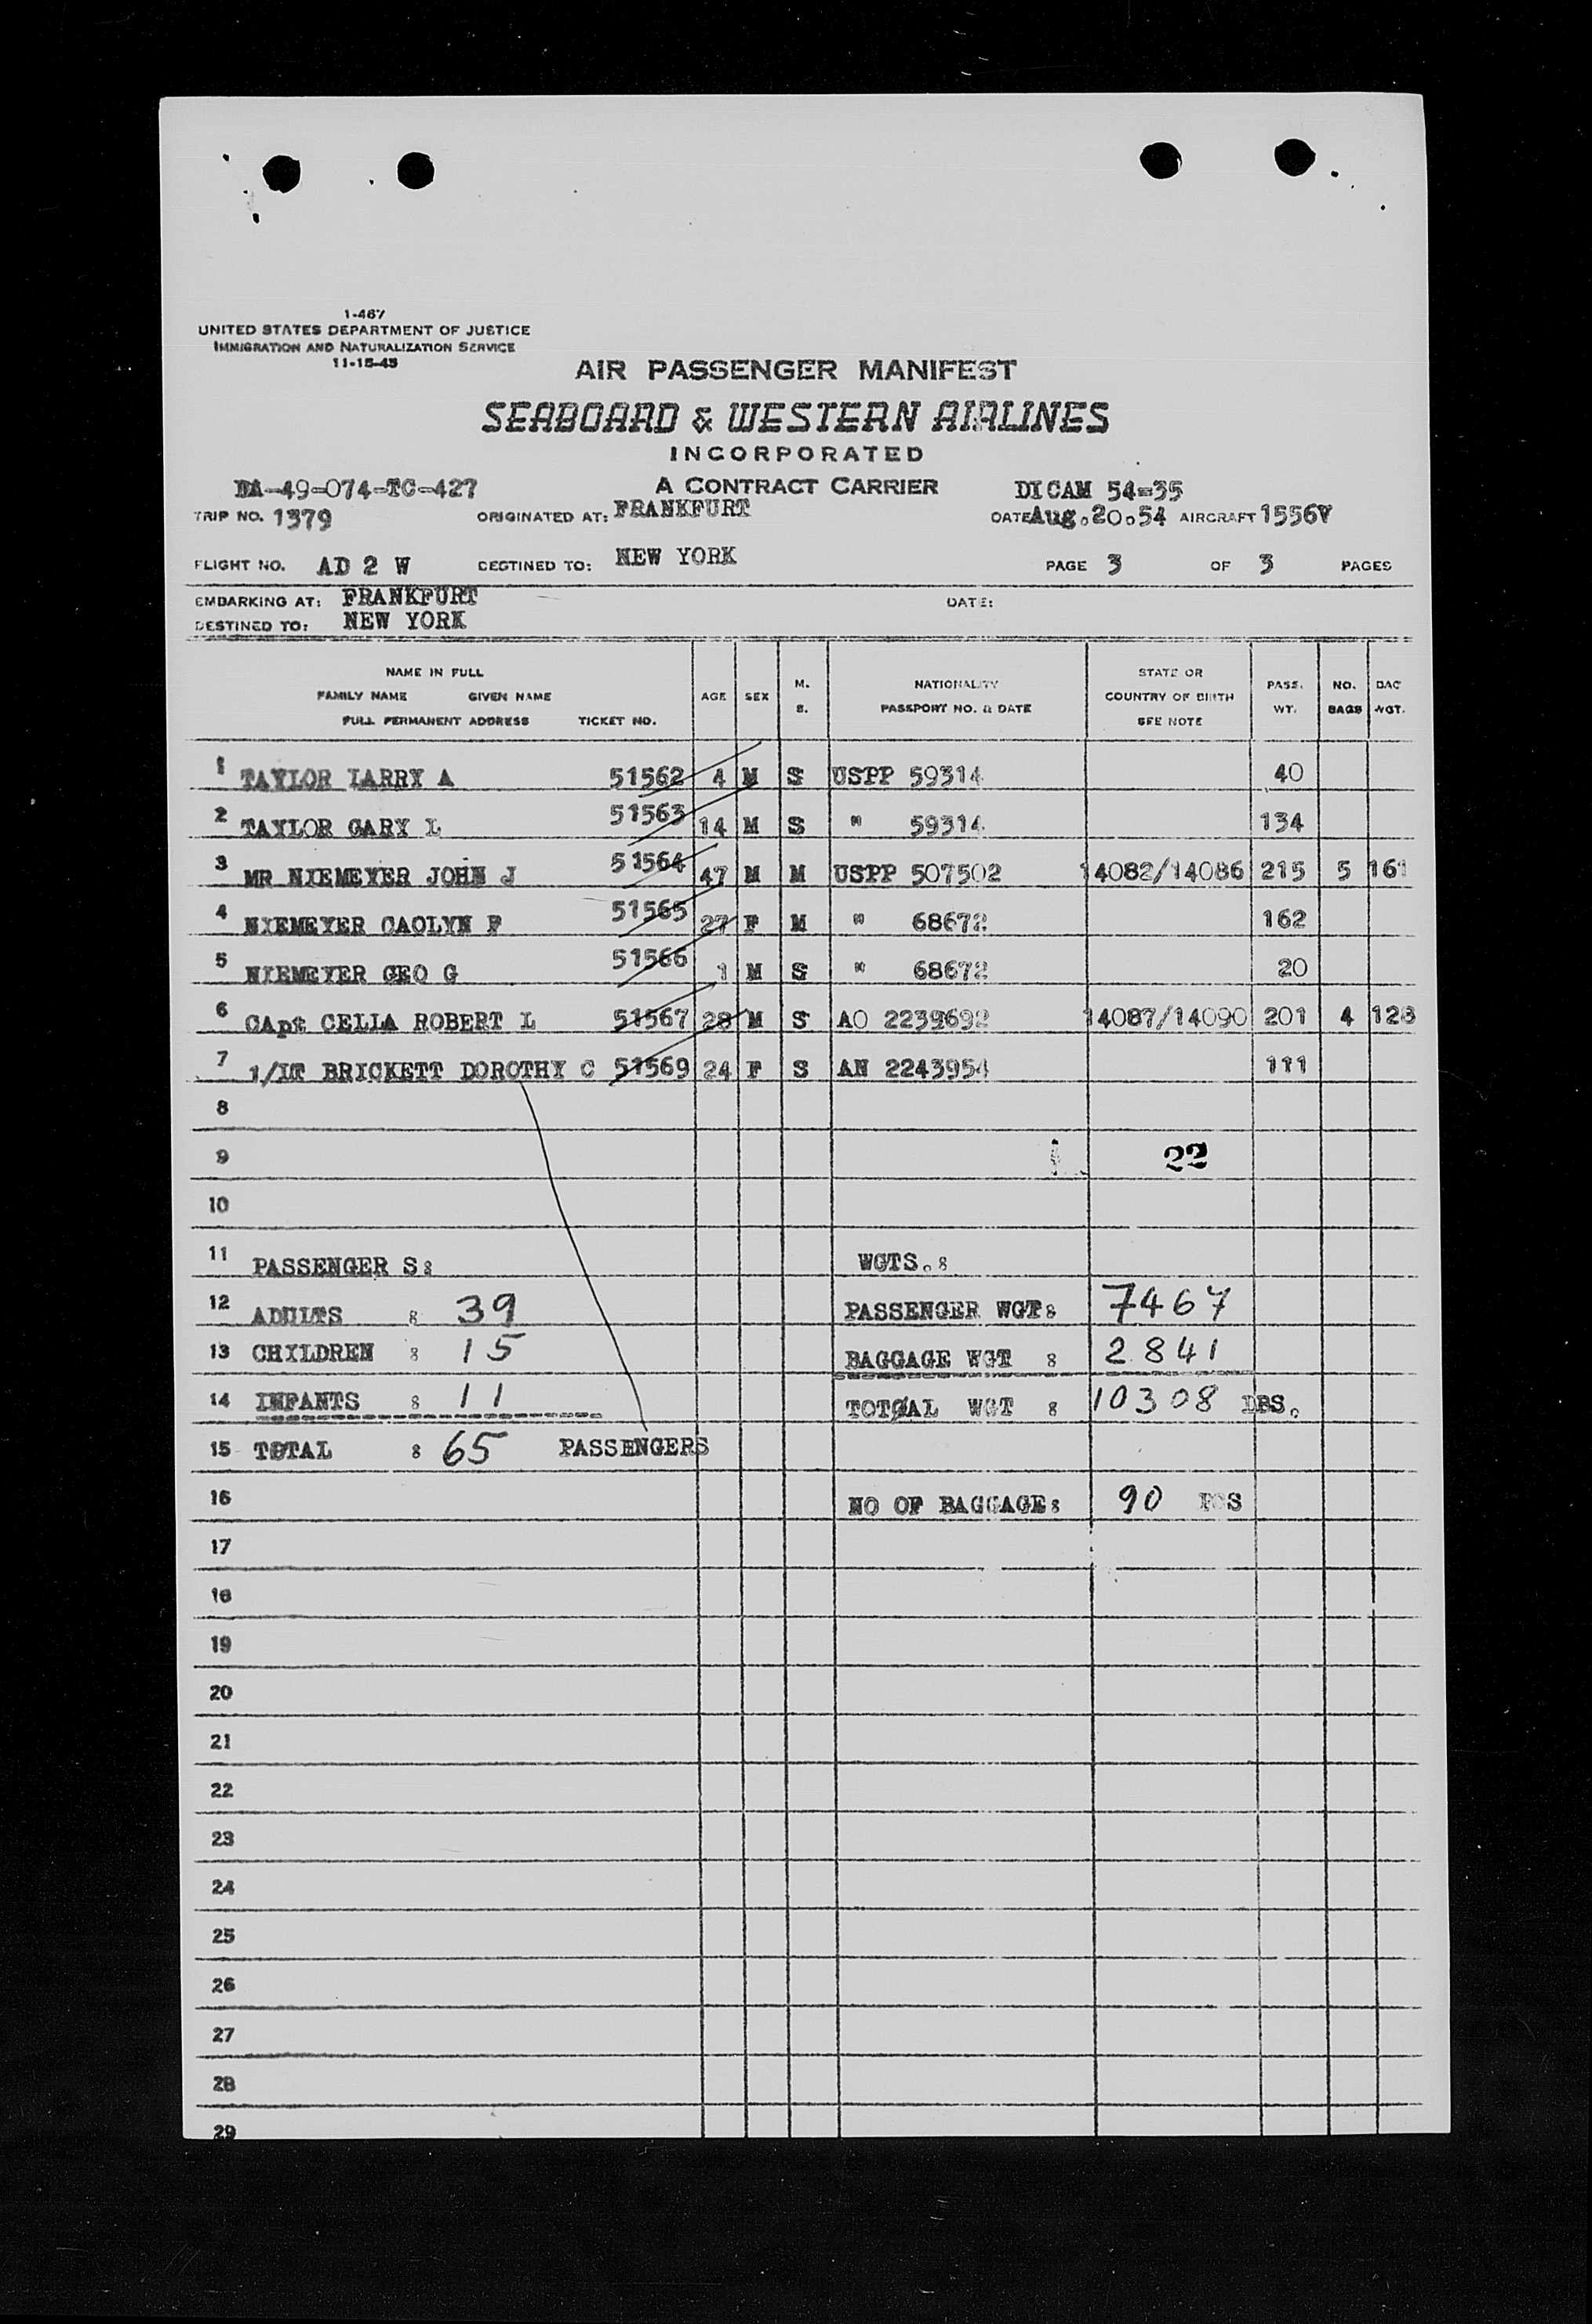 1-467
UNITED STATES DEPARTMENT OF JUSTICE
IMMIGRATION AND NATURALIZATION SERVICE
11-15-45
AIR PASSENGER MANIFEST
SEABOARD & WESTERN AIRLINES
INCORPORATED
DA-49-074-TC-427 A CONTRACT CARRIER DICAM 54-35
TRIP NO. 1379 ORIGINATED AT: FRANKFURT DATE Aug.20.54 AIRCRAFT 1556V
FLIGHT NO. AD 2 W DESTINED TO: NEW YORK PAGE 3 OF 3 PAGES
EMBARKING AT: FRANKFURT DATE:
DESTINED TO: NEW YORK
NAME IN FULL
FAMILY NAME GIVEN NAME
FULL PERMANENT ADDRESS TICKET NO.
AGE
SEX
M.
S.
NATIONALITY
PASSPORT NO. & DATE
STATE OR
COUNTRY OF BIRTH
SEE NOTE
PASS.
WT.
NO.
BAGS
BAG
WGT.
1 TAYLOR LARRY A 51562 4 M S USPP 59314 40
2 TAYLOR GARY L 51563 14 M S " 59314 134
3 MR NIEMEYER JOHN J 51564 47 M M USPP 507502 14082/14086 215 5 161
4 NIEMEYER CAOLYN F 51565 27 F M " 68672 162
5 NIEMEYER GEO G 51566 1 M S " 68672 20
6 CApt CELLA ROBERT L 51567 28 M S AO 2239692 14087/14090 201 4 128
7 1/LT BRICKETT DOROTHY C 51569 24 F S AN 2243954 111
8
9 22
10
11 PASSENGER S: WGTS.:
12 ADULTS : 39 PASSENGER WGT: 7467
13 CHILDREN : 15 BAGGAGE WGT : 2841
14 INFANTS : 11 TOTGAL WGT : 10308 LBS.
15 TOTAL : 65 PASSENGERS
16 NO OF BAGGAGE: 90 PCS
17
18
19
20
21
22
23
24
25
26
27
28
29